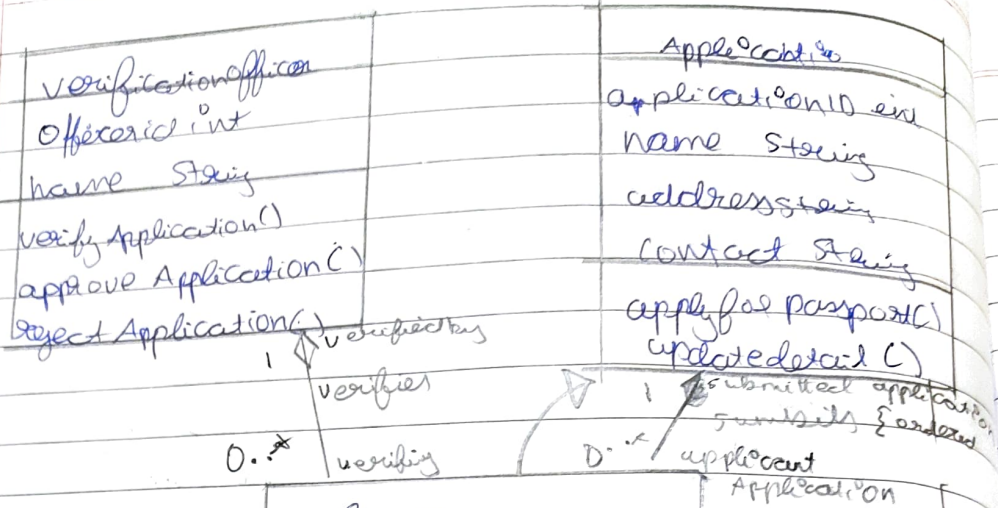 verificationofficer
Officerid int
name String
verify Application()
approve Application()
reject Application()
Application
applicationID int
name String
address String
contact String
applyfor passport()
updatedetail ()
verifiedby
1
verifies
0..*
verifiing
1
submitted application
sumbits {ordered
0..*
applicant
Application